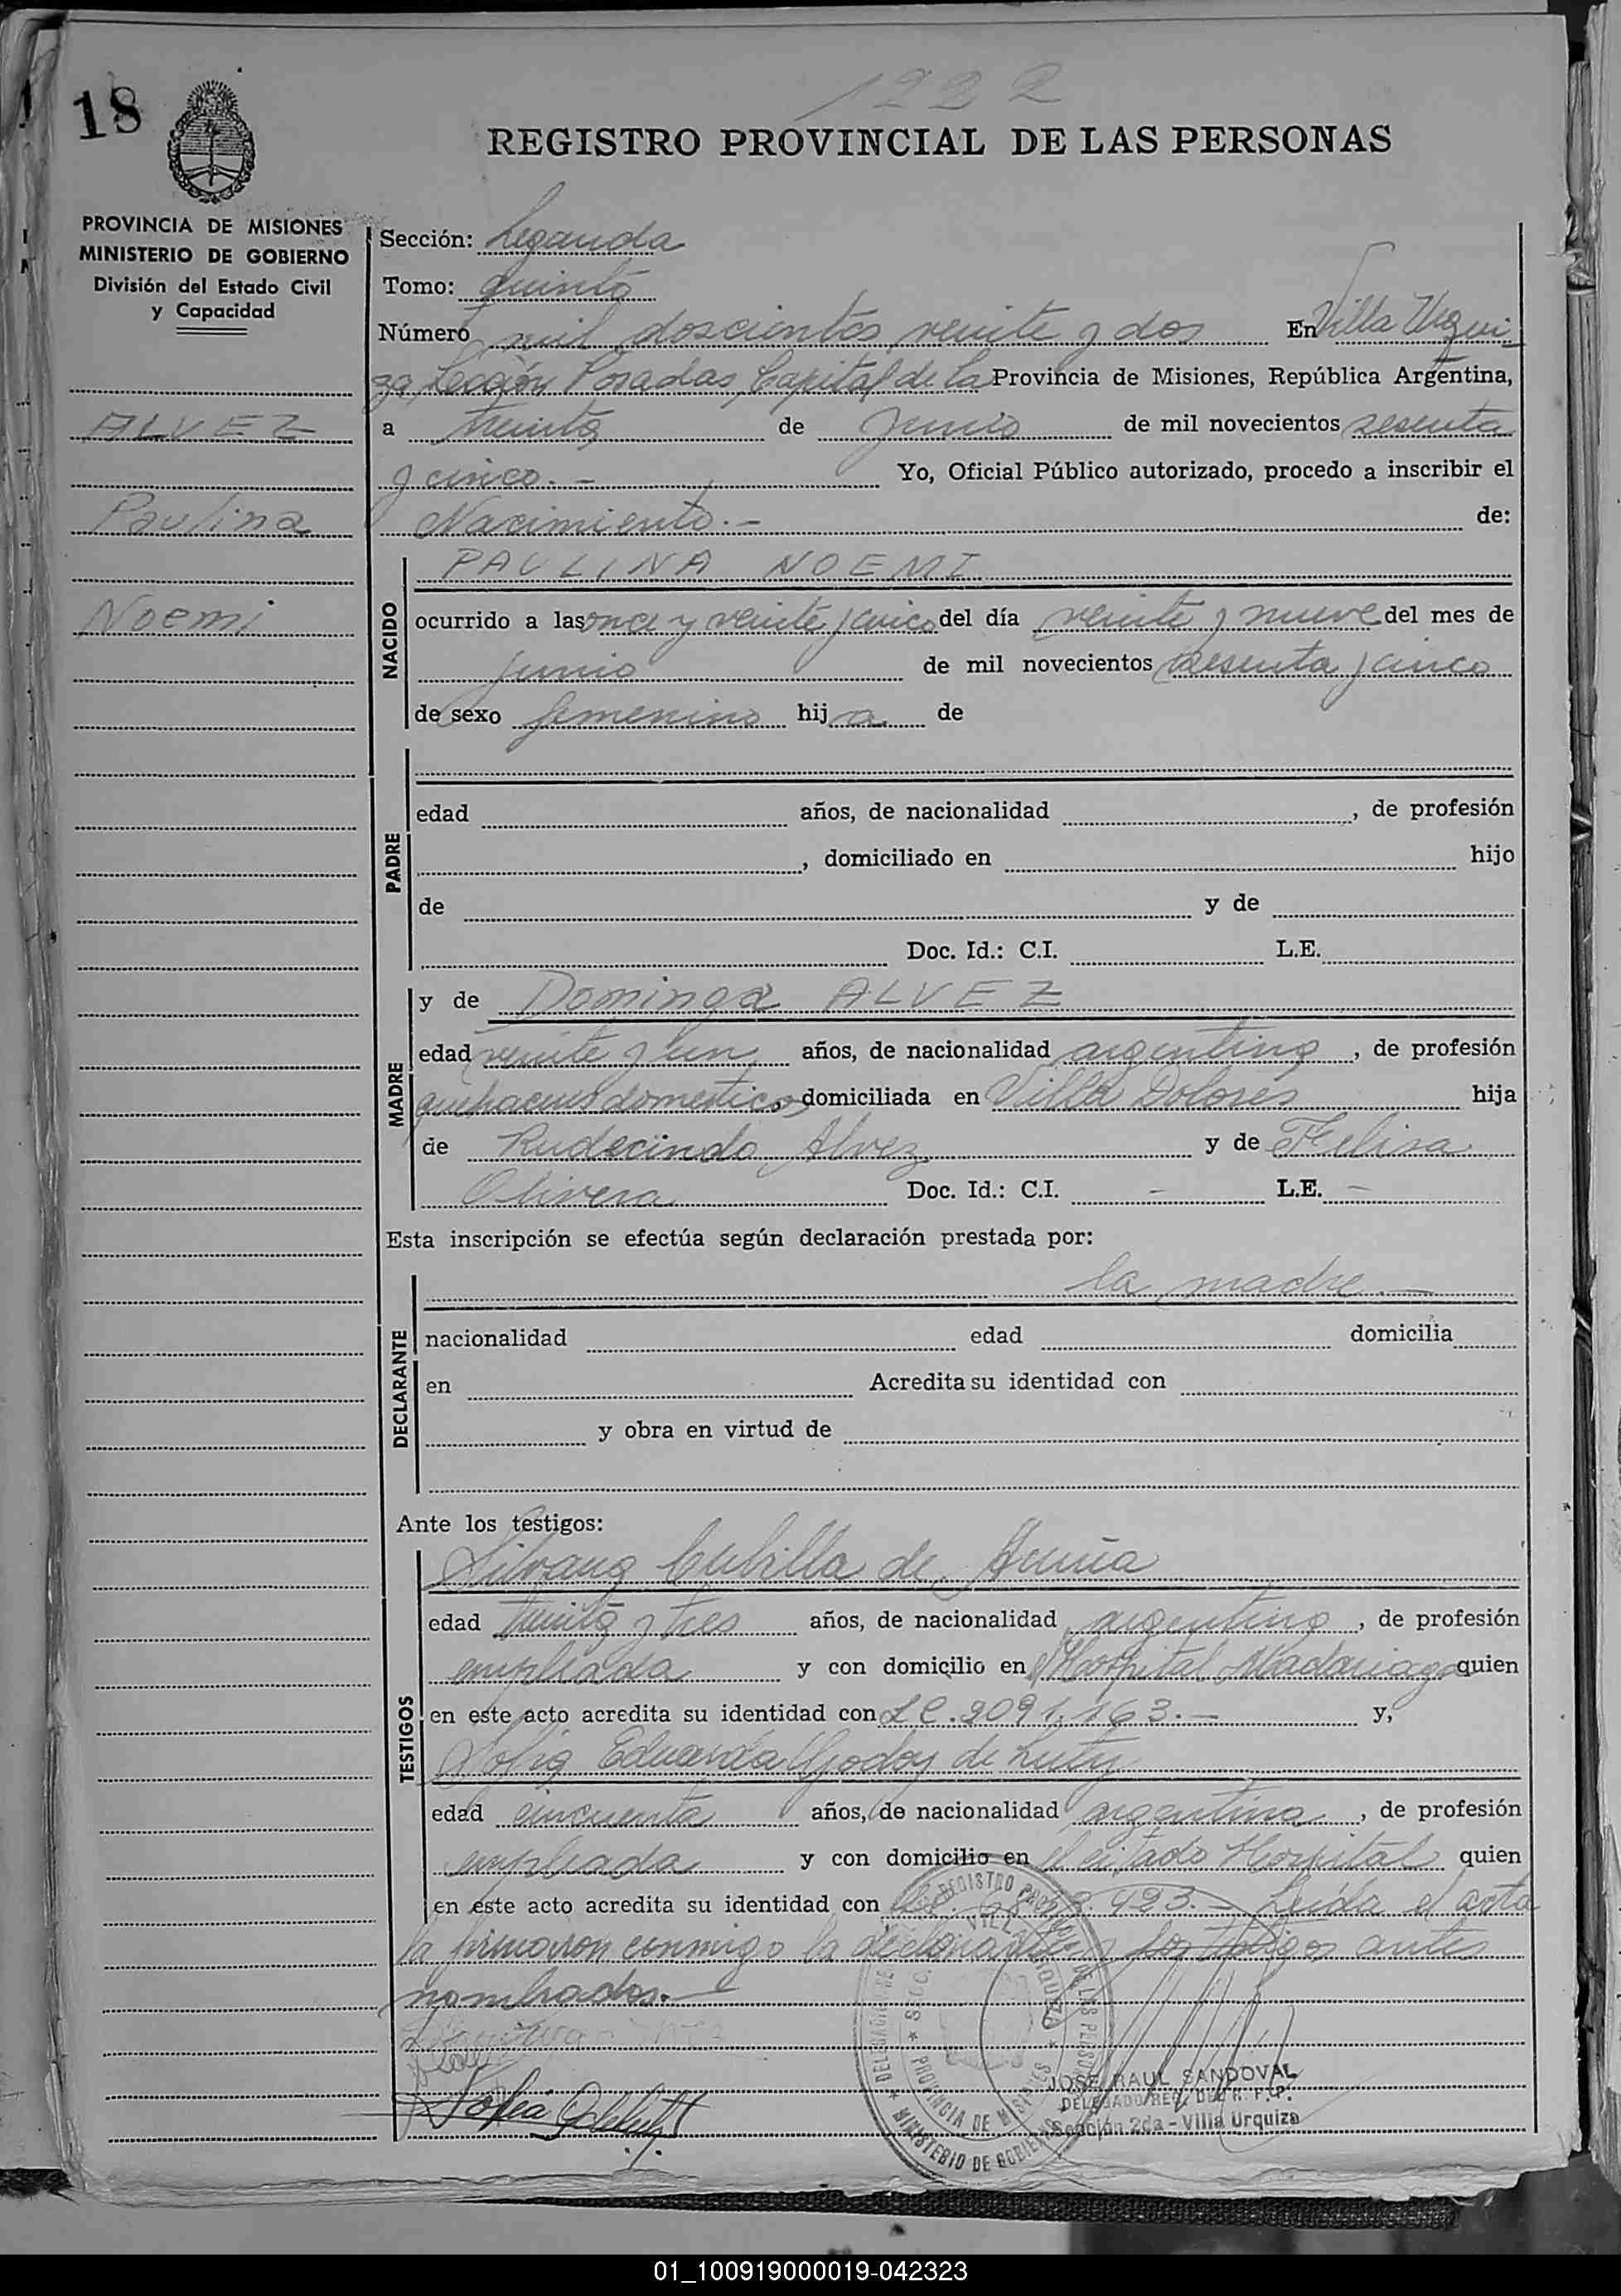 1222
18
REGISTRO PROVINCIAL DE LAS PERSONAS
PROVINCIA DE MISIONES
MINISTERIO DE GOBIERNO
División del Estado Civil
y Capacidad
ALVEZ
Paulina
Noemi
Sección: Segunda
Tomo: quinto
Número mil doscientos veinte y dos En Villa Urqui
za, Sección Posadas, Capital de la Provincia de Misiones, República Argentina,
a treinta de Junio de mil novecientos sesenta
y cinco.- Yo, Oficial Público autorizado, procedo a inscribir el
Nacimiento.- de:
NACIDO
PAULINA NOEMI
ocurrido a las once y veinte y cinco del día veinte y nueve del mes de
junio de mil novecientos sesenta y cinco
de sexo femenino hija de
PADRE
edad años, de nacionalidad , de profesión
, domiciliado en hijo
de y de
Doc. Id.: C.I. L.E.
MADRE
y de Dominga ALVEZ
edad veinte y un años, de nacionalidad argentina, de profesión
quehaceres domesticos domiciliada en Villa Dolores hija
de Rudecindo Alvez y de Felisa
Olivera Doc. Id.: C.I. - L.E. -
Esta inscripción se efectúa según declaración prestada por:
DECLARANTE
la madre
nacionalidad edad domicilia
en Acredita su identidad con
y obra en virtud de
Ante los testigos:
TESTIGOS
Silvana Cubilla de Acuña
edad treinta y tres años, de nacionalidad argentina, de profesión
empleada y con domicilio en el Hospital Madariaga quien
en este acto acredita su identidad con LC.2091.163.- y,
Sofia Eduarda Godoy de Luty
edad cincuenta años, de nacionalidad argentina, de profesión
empleada y con domicilio en el citado Hospital quien
en este acto acredita su identidad con 423.- Leída el acta
la firmaron conmigo la declarante y los testigos antes
nombrados.-
Sofia
REGISTRO PROVINCIAL DE LAS PERSONAS
PROVINCIA DE MISIONES
MINISTERIO DE GOBIERNO
JOSE RAUL SANDOVAL
DELEGADO REG. DEL R. P. P.
Sección 2da - Villa Urquiza
01_100919000019-042323